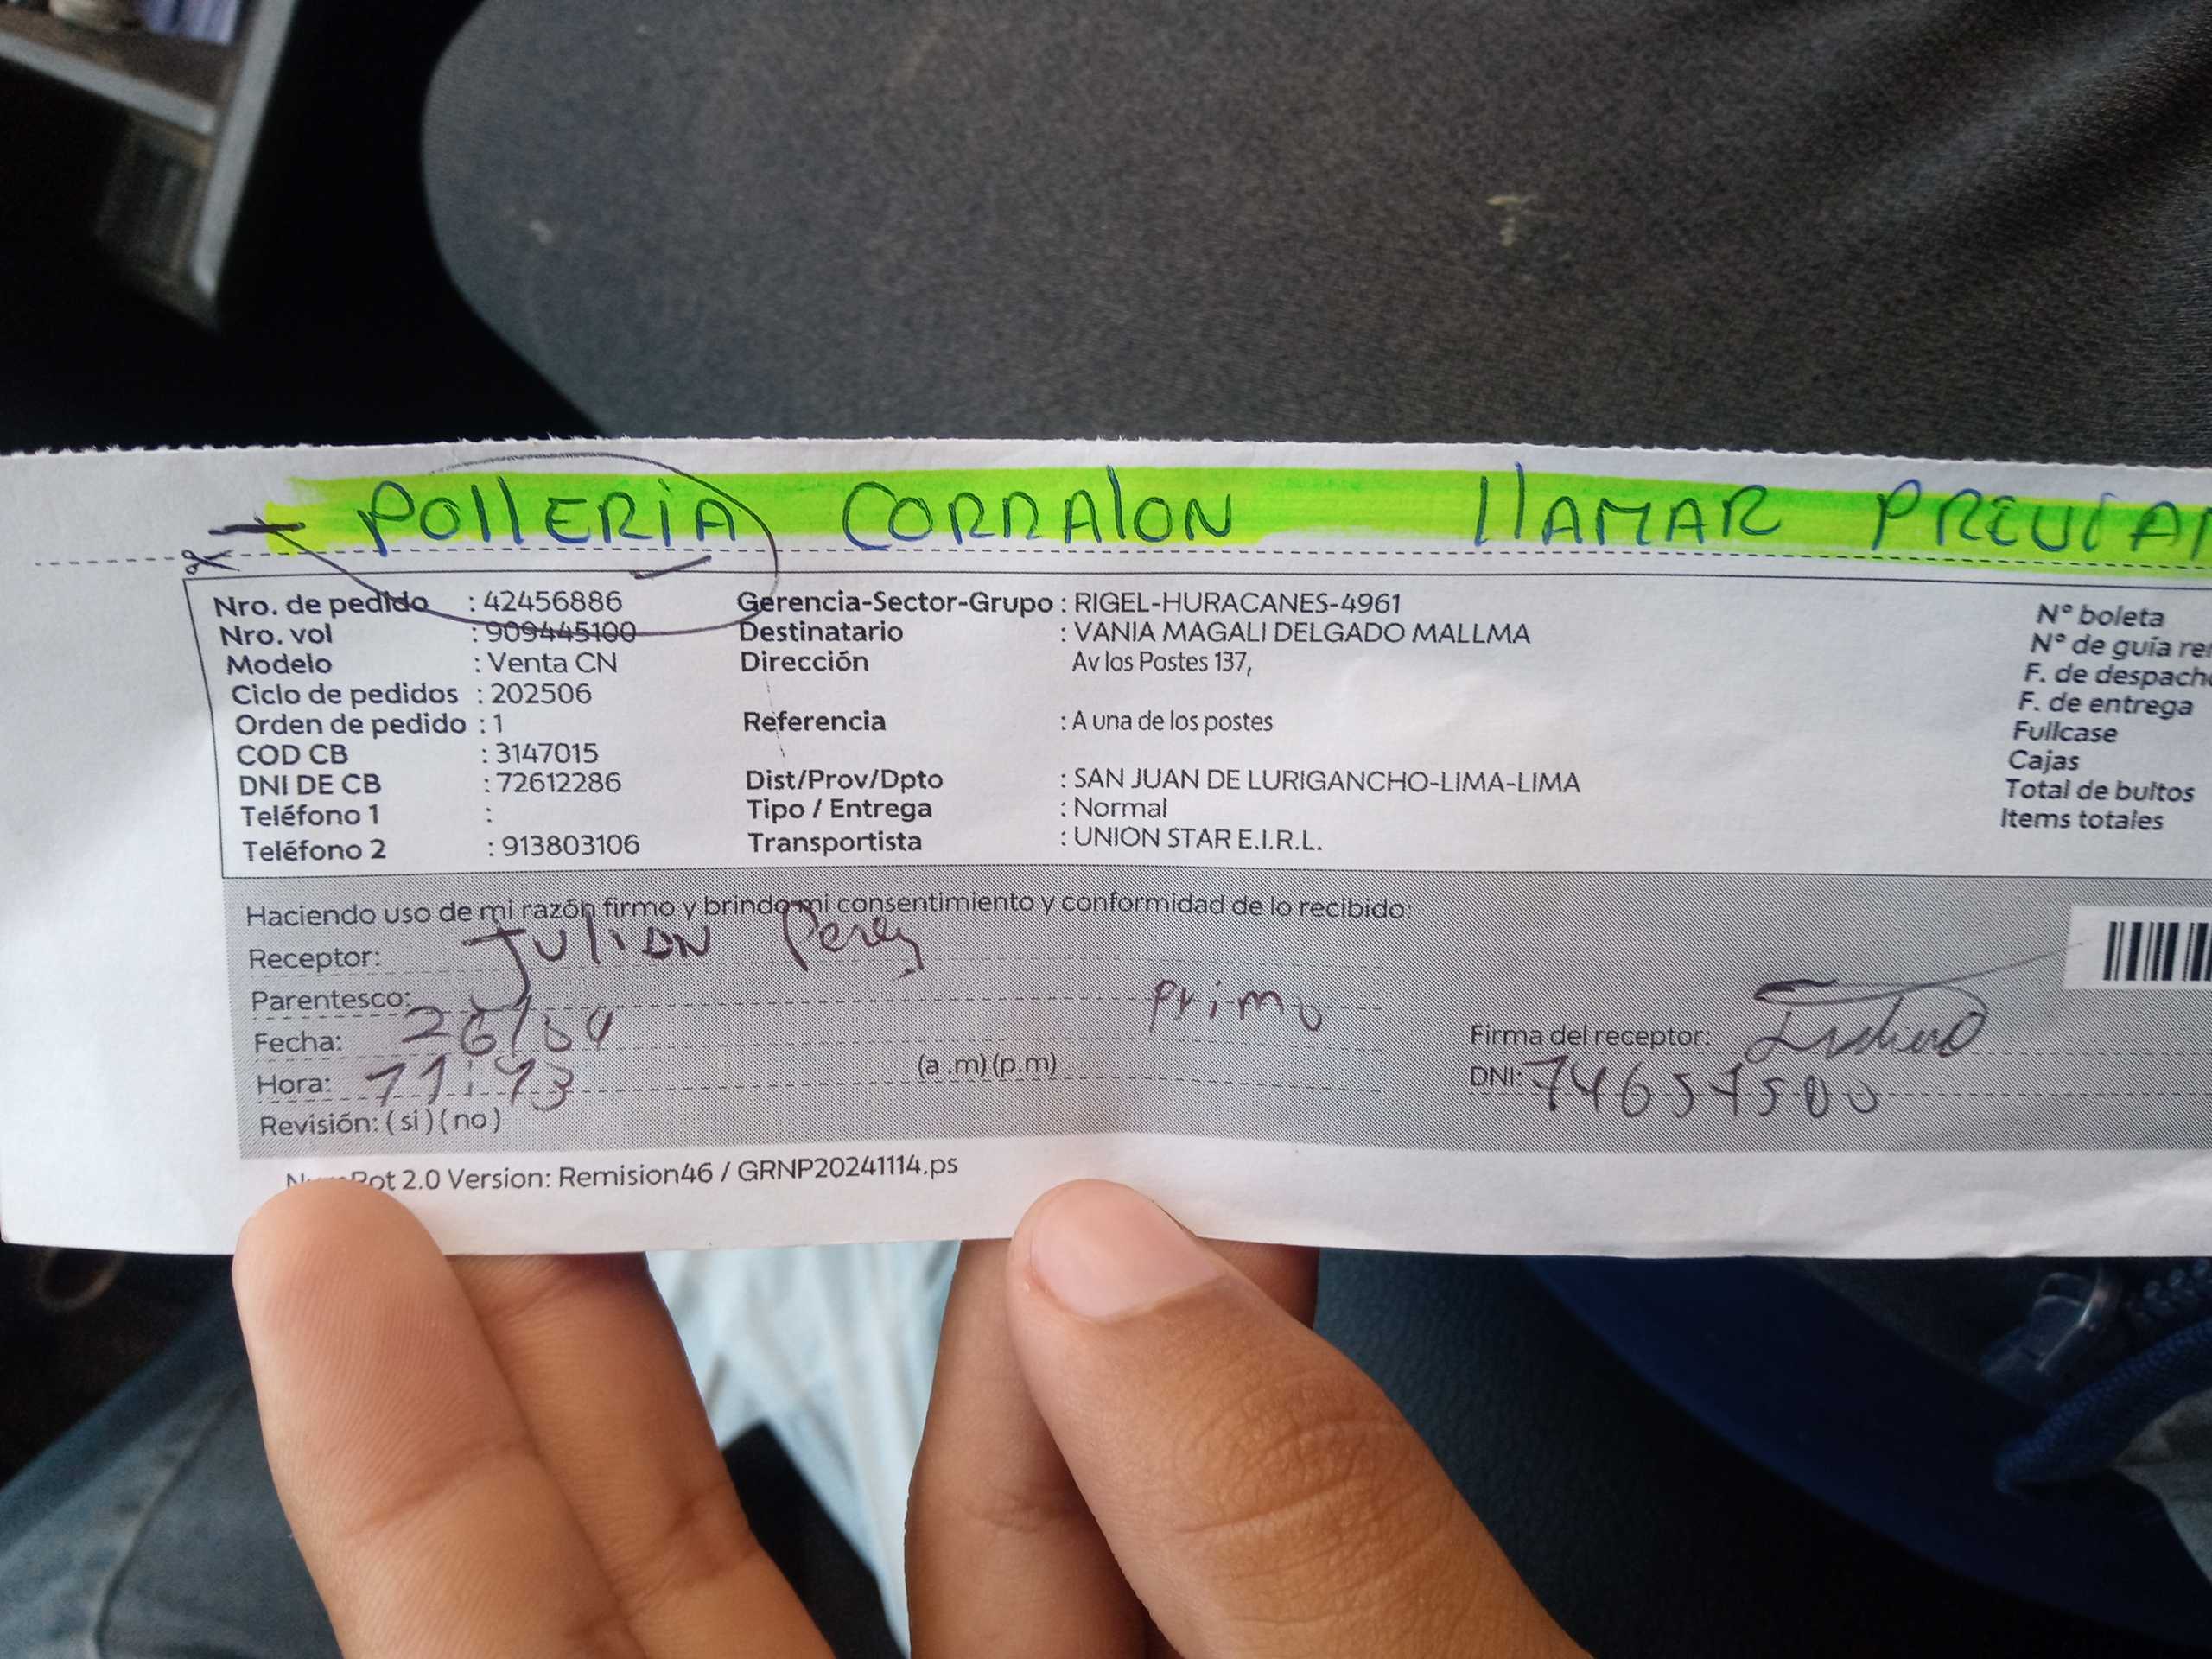 POllERIA CORRAlON llAMAR PREVIA
Nro. de pedido : 42456886 Gerencia-Sector-Grupo : RIGEL-HURACANES-4961 N° boleta
Nro. vol : 909445100 Destinatario : VANIA MAGALI DELGADO MALLMA N° de guía re
Modelo : Venta CN Dirección Av los Postes 137, F. de despach
Ciclo de pedidos : 202506 F. de entrega
Orden de pedido : 1 Referencia : A una de los postes Fullcase
COD CB : 3147015 Cajas
DNI DE CB : 72612286 Dist/Prov/Dpto : SAN JUAN DE LURIGANCHO-LIMA-LIMA Total de bultos
Teléfono 1 : Tipo / Entrega : Normal Items totales
Teléfono 2 : 913803106 Transportista : UNION STAR E.I.R.L.
Haciendo uso de mi razón firmo y brindo mi consentimiento y conformidad de lo recibido:
Receptor: Julian Perez
Parentesco: Primo
Fecha: 26/04 Firma del receptor:
Hora: (a .m) (p.m) DNI:
Revisión: ( si ) ( no )
2.0 Version: Remision46 / GRNP20241114.ps